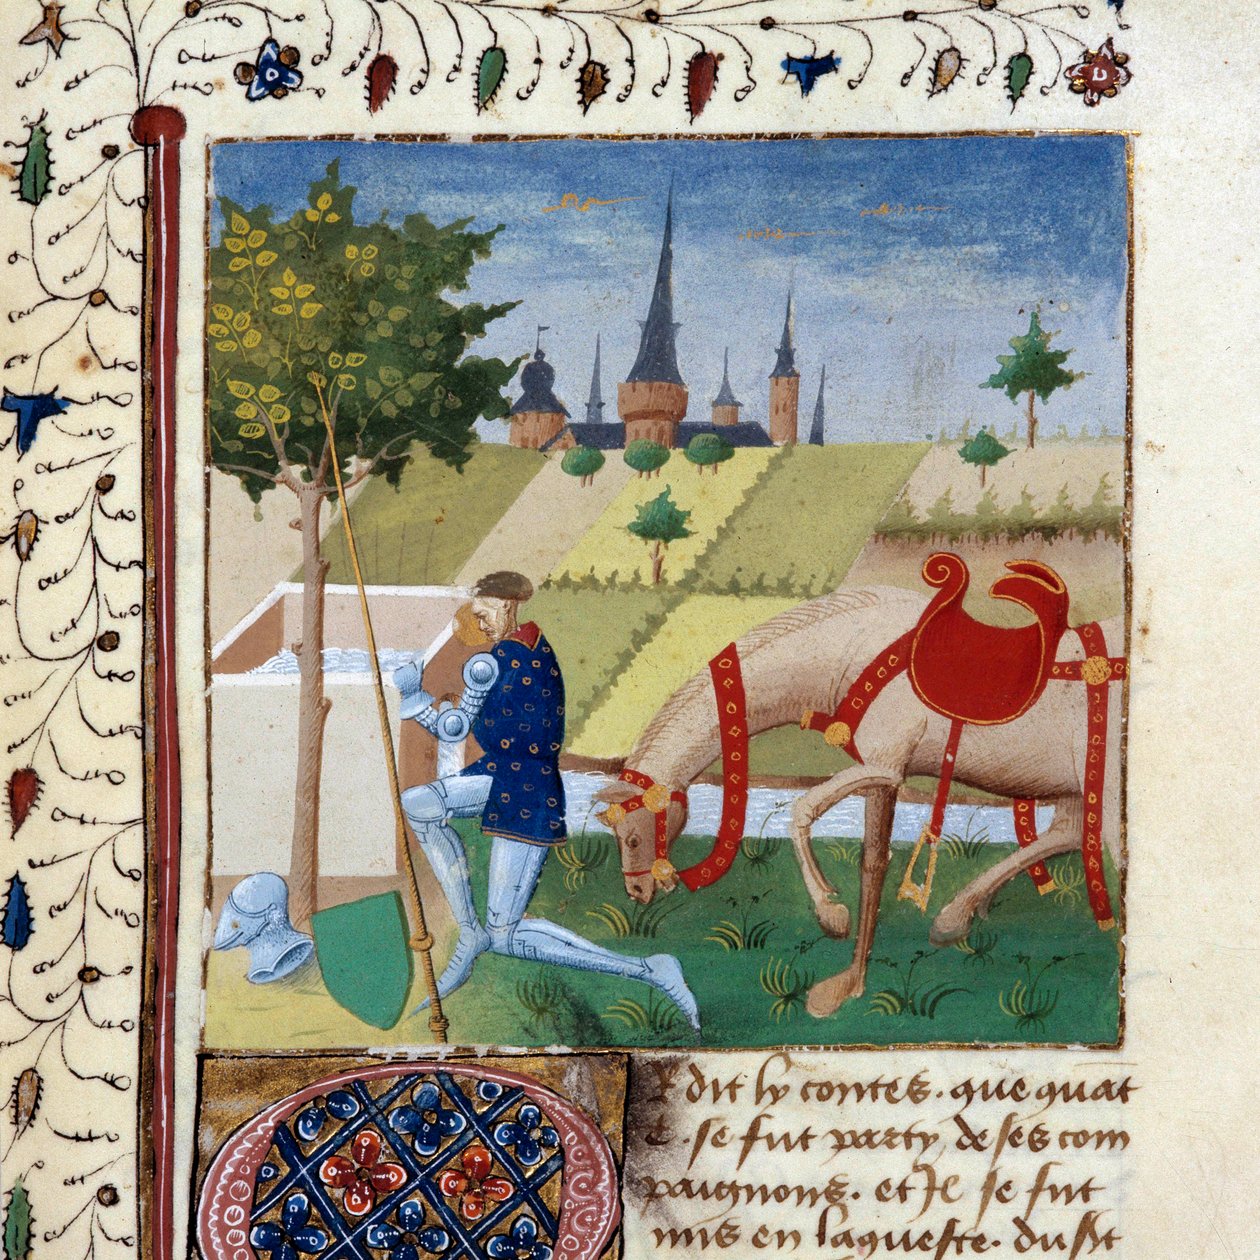 r dit ly contes. que quat
t. se fut party de ses com
paignons. et Il se fut
mis en laqueste. du st